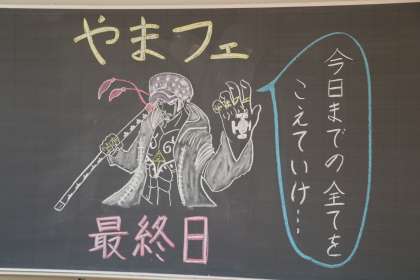 やまフェ
今日までの全てを
こえていけ…
最終日